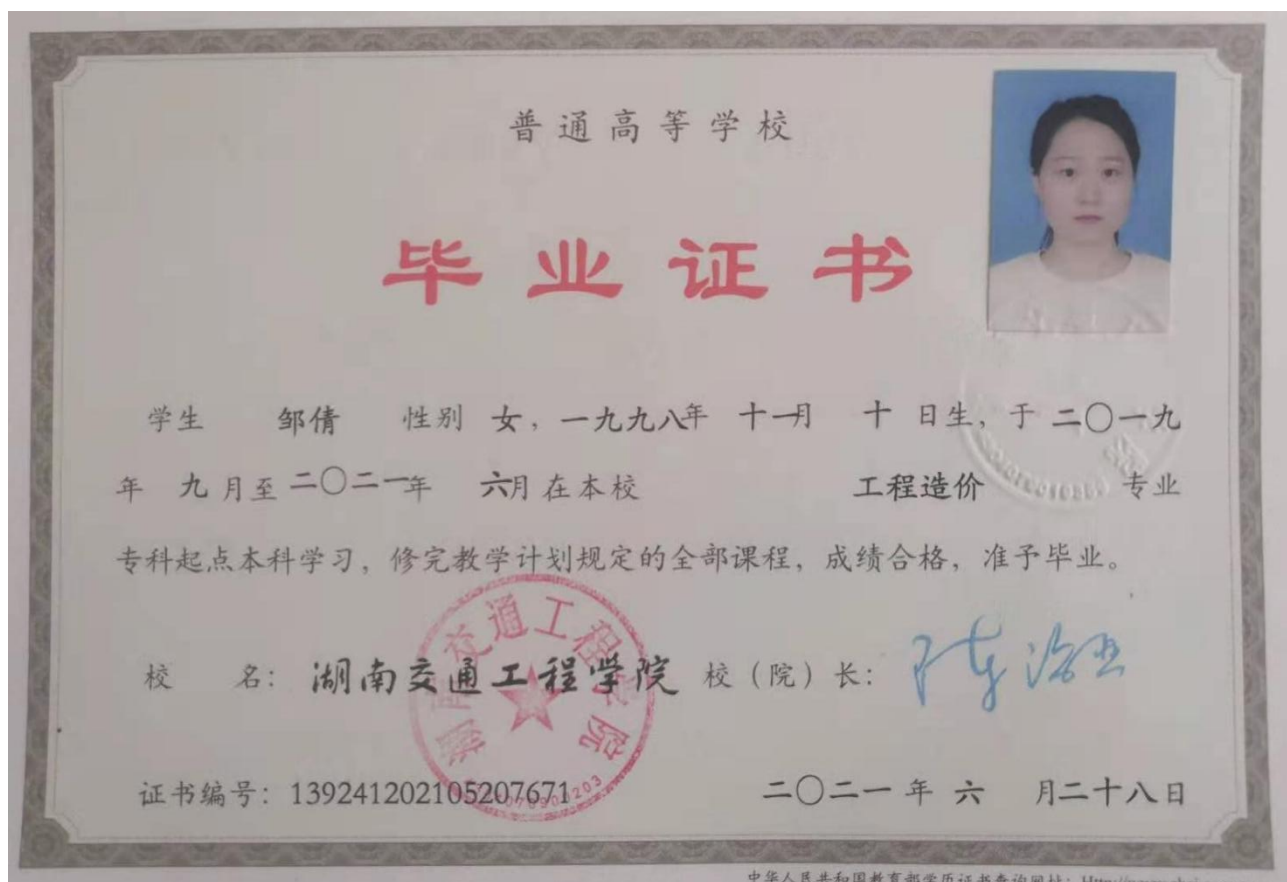 普通高等学校
毕业证书
学生 邹倩 性别 女，一九九八年 十一月 十 日生，于 二〇一九
年 九 月至 二〇二一年 六月 在本校 工程造价 专业
专科起点本科学习，修完教学计划规定的全部课程，成绩合格，准予毕业。
校 名：湖南交通工程学院 校（院）长：陈治亚
湖南交通工程学院
证书编号：139241202105207671 二〇二一 年 六 月二十八日
中华人民共和国教育部学历证书查询网址：